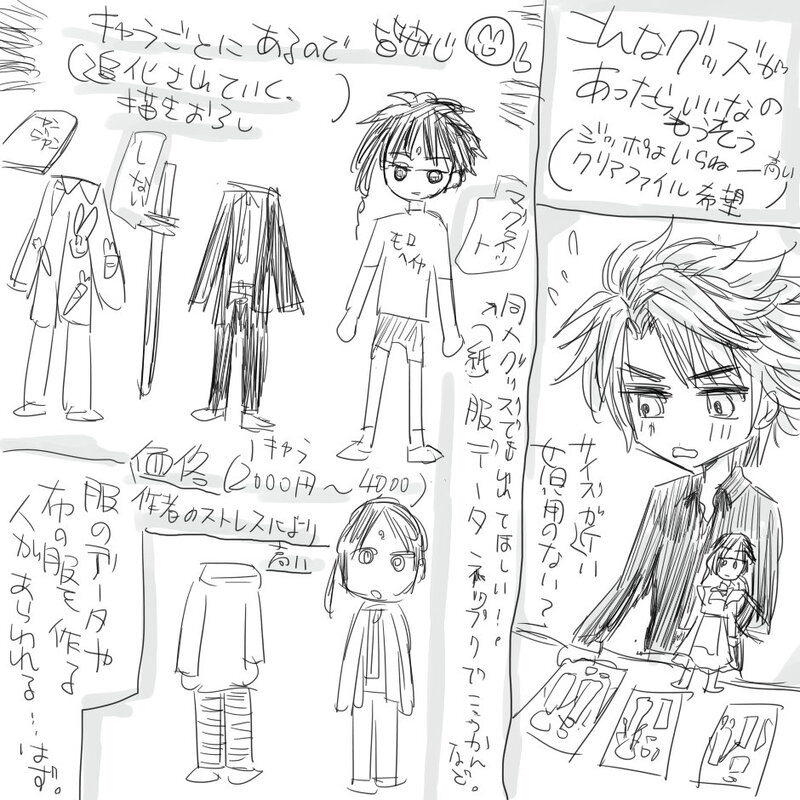 こんなグッズが
あったらいいなの
もうそう
(ジッポはいらねー高い
クリアファイル希望)
サイズが近い
女児用のない?
キャラごとにあるので
(追化されていく。
描きおろし)
しない
マグネット
モロ
ヘイヤ
同人グッズでも出てほしい!!
(紙)服データ ネップリで
など。
価格
1キャラ
(2000円〜4000)
作者のストレスにより
高い
服のデータや
布の服を作る
人があらわれる…はず。